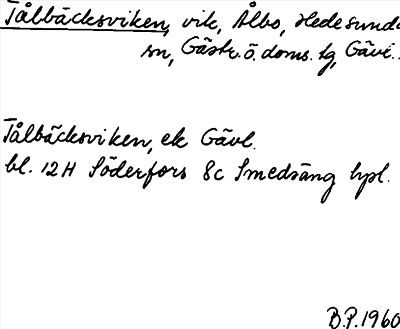 Tålbäcksviken, vik, Ålbo, Hedesunda
sn, Gästr. ö. doms. tg, Gävl.
Tålbäcksviken, ek Gävl.
bl. 12H Söderfors 8c Smedsäng hpl.
B.P. 1960